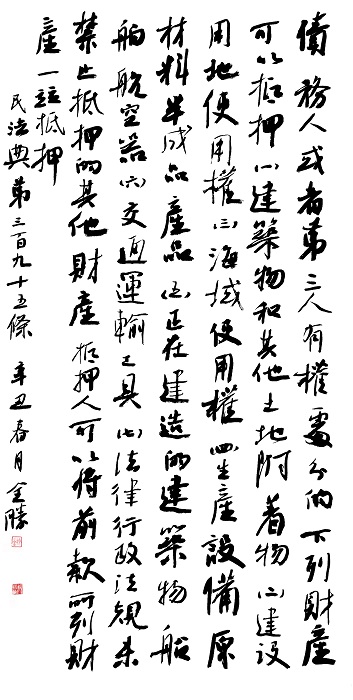 債務人或者第三人有權處分的下列財產
可以抵押(一)建築物和其他土地附着物(二)建設
用地使用權(三)海域使用權(四)生產設備原
材料半成品產品(五)正在建造的建築物船
舶航空器(六)交通運輸工具(七)法律行政法規未
禁止抵押的其他財產抵押人可以將前款所列財
產一並抵押
民法典第三百九十五條 辛丑春月全勝